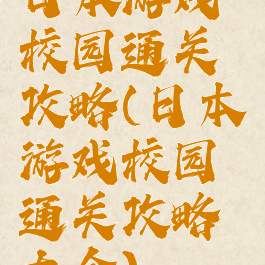 日本游戏
校园通关
攻略(日本
游戏校园
通关攻略
大全)